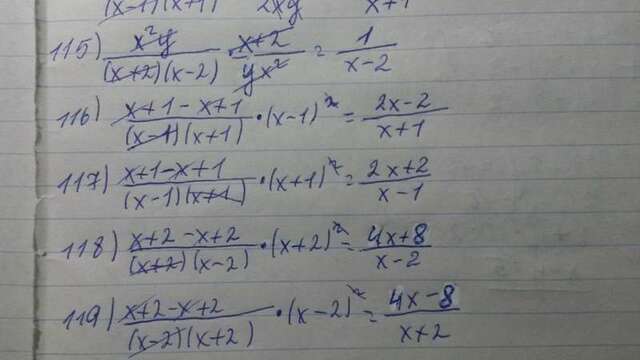 (x-1)(x+1) 2xy x+1
115) x²y/(x+2)(x-2) · x+2/yx² = 1/x-2
116) x+1-x+1/(x-1)(x+1) · (x-1)² = 2x-2/x+1
117) x+1-x+1/(x-1)(x+1) · (x+1)² = 2x+2/x-1
118) x+2-x+2/(x+2)(x-2) · (x+2)² = 4x+8/x-2
119) x+2-x+2/(x-2)(x+2) · (x-2)² = 4x-8/x+2